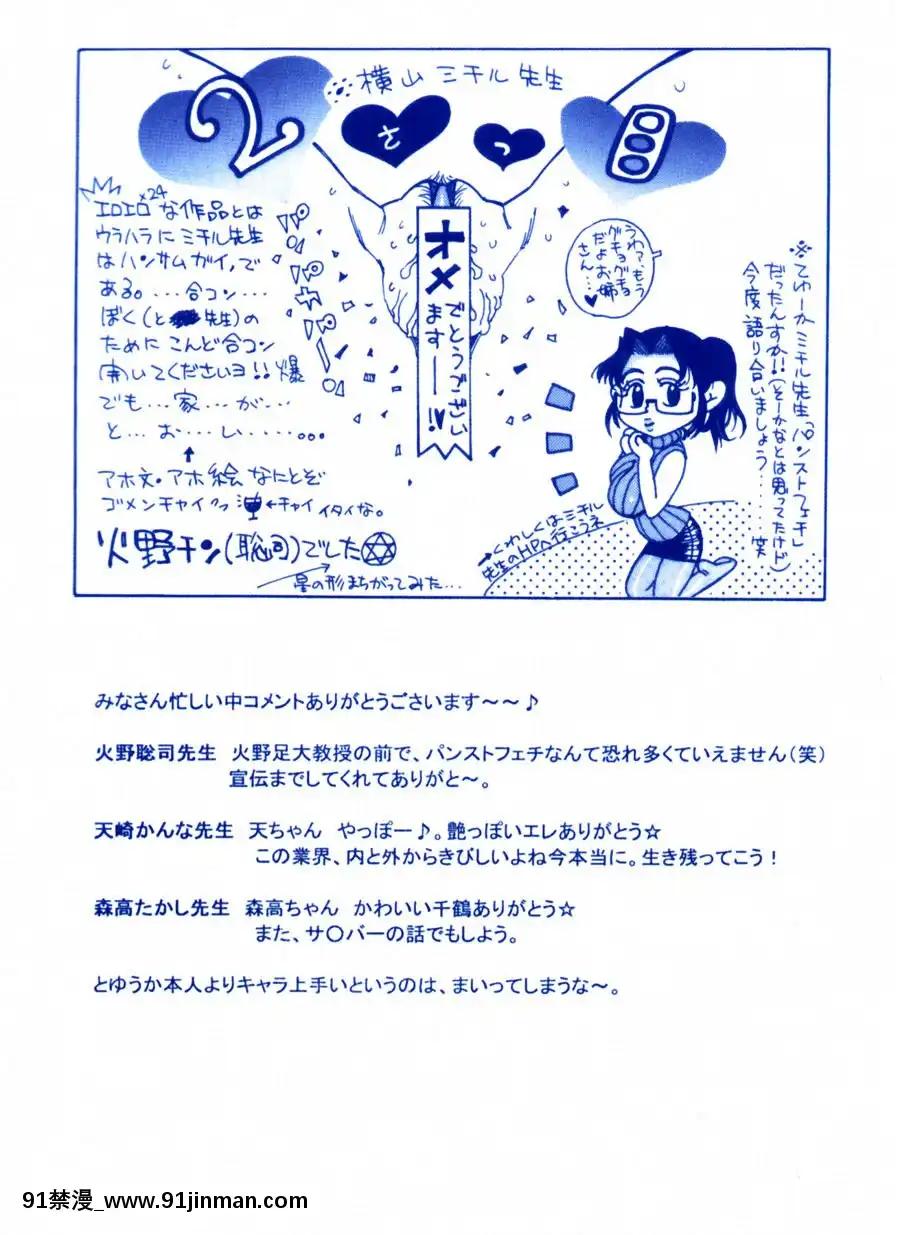 横山ミチル先生
2
さ
つ
オメ
でとうござい
ます――!!
パンパカパーン!
エロエロ×24な作品とは
ウラハラにミチル先生
はハンサムガイ、で
ある。…合コン…
ぼく(と 先生)の
ためにこんど合コン
開いてくださいヨ!!爆
でも…家…が…
と…お…し………。
アホ文・アホ絵なにとぞ
ゴメンチャイ ←チャイ イタイな。
火野チン(聡司)でした✡
星の形まちがってみた…
うわァもう
グチョグチョ
だよお姉
さん…♥
※てゆーかミチル先生「パンストフェチ」
だったんすか!!(そーかなとは思ってたけど)
今度語り合いましょう……笑
→くわしくはミチル
先生のHPへ行こうネ
みなさん忙しい中コメントありがとうごさいます～～♪
火野聡司先生 火野足大教授の前で、パンストフェチなんて恐れ多くていえません(笑)
宣伝までしてくれてありがと～。
天崎かんな先生 天ちゃん やっぽー♪。艶っぽいエレありがとう☆
この業界、内と外からきびしいよね今本当に。生き残ってこう!
森高たかし先生 森高ちゃん かわいい千鶴ありがとう☆
また、サ〇バーの話でもしよう。
とゆうか本人よりキャラ上手いというのは、まいってしまうな～。
91禁漫_www.91jinman.com